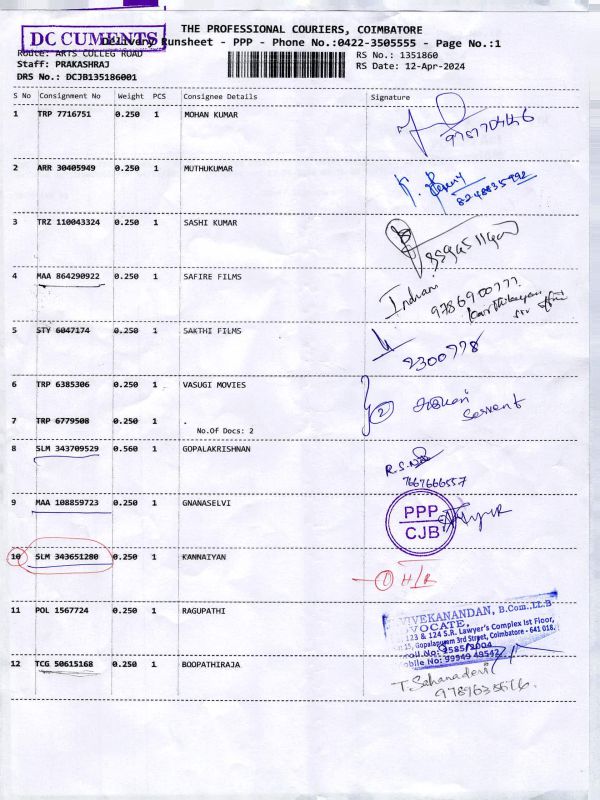 DC CUMENTS
THE PROFESSIONAL COURIERS, COIMBATORE
Delivery Runsheet - PPP - Phone No.:0422-3505555 - Page No.:1
Route: ARTS COLLEG ROAD
RS No.: 1351860
Staff: PRAKASHRAJ
RS Date: 12-Apr-2024
DRS No.: DCJB135186001
S No Consignment No Weight PCS Consignee Details Signature
1 TRP 7716751 0.250 1 MOHAN KUMAR
2 ARR 30405949 0.250 1 MUTHUKUMAR
8248835992
3 TRZ 110043324 0.250 1 SASHI KUMAR
4 MAA 864290922 0.250 1 SAFIRE FILMS
Indran
9786900777
5 STY 6047174 0.250 1 SAKTHI FILMS
2300778
6 TRP 6385306 0.250 1 VASUGI MOVIES
2
Servent
7 TRP 6779508 0.250 1 .
No.Of Docs: 2
8 SLM 343709529 0.560 1 GOPALAKRISHNAN
7667666557
9 MAA 108859723 0.250 1 GNANASELVI
PPP
CJB
10 SLM 343651280 0.250 1 KANNAIYAN
1 H/R
11 POL 1567724 0.250 1 RAGUPATHI
VIVEKANANDAN, B.Com.,LL.B
VOCATE,
123 & 124 S.R. Lawyer's Complex Ist Floor,
15, Gopalapuram 3rd Street, Coimbatore - 641 018.
roll No: 2585/2004
obile No: 99949 49542
12 TCG 50615168 0.250 1 BOOPATHIRAJA
T. Sahanadevi